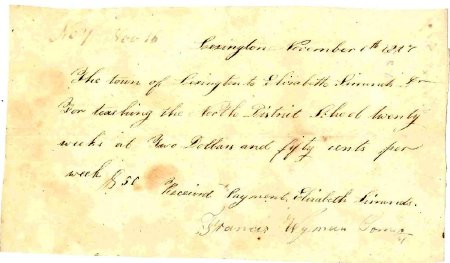 No 7 Nov 16
Lexington November 1th 1827
The town of Lexington to Elizabeth Simonds Dr
For teaching the North District School twenty
weeks at Two Dollars and fifty cents per
week $50
Received Payment, Elizabeth Simonds.
Francis Wyman